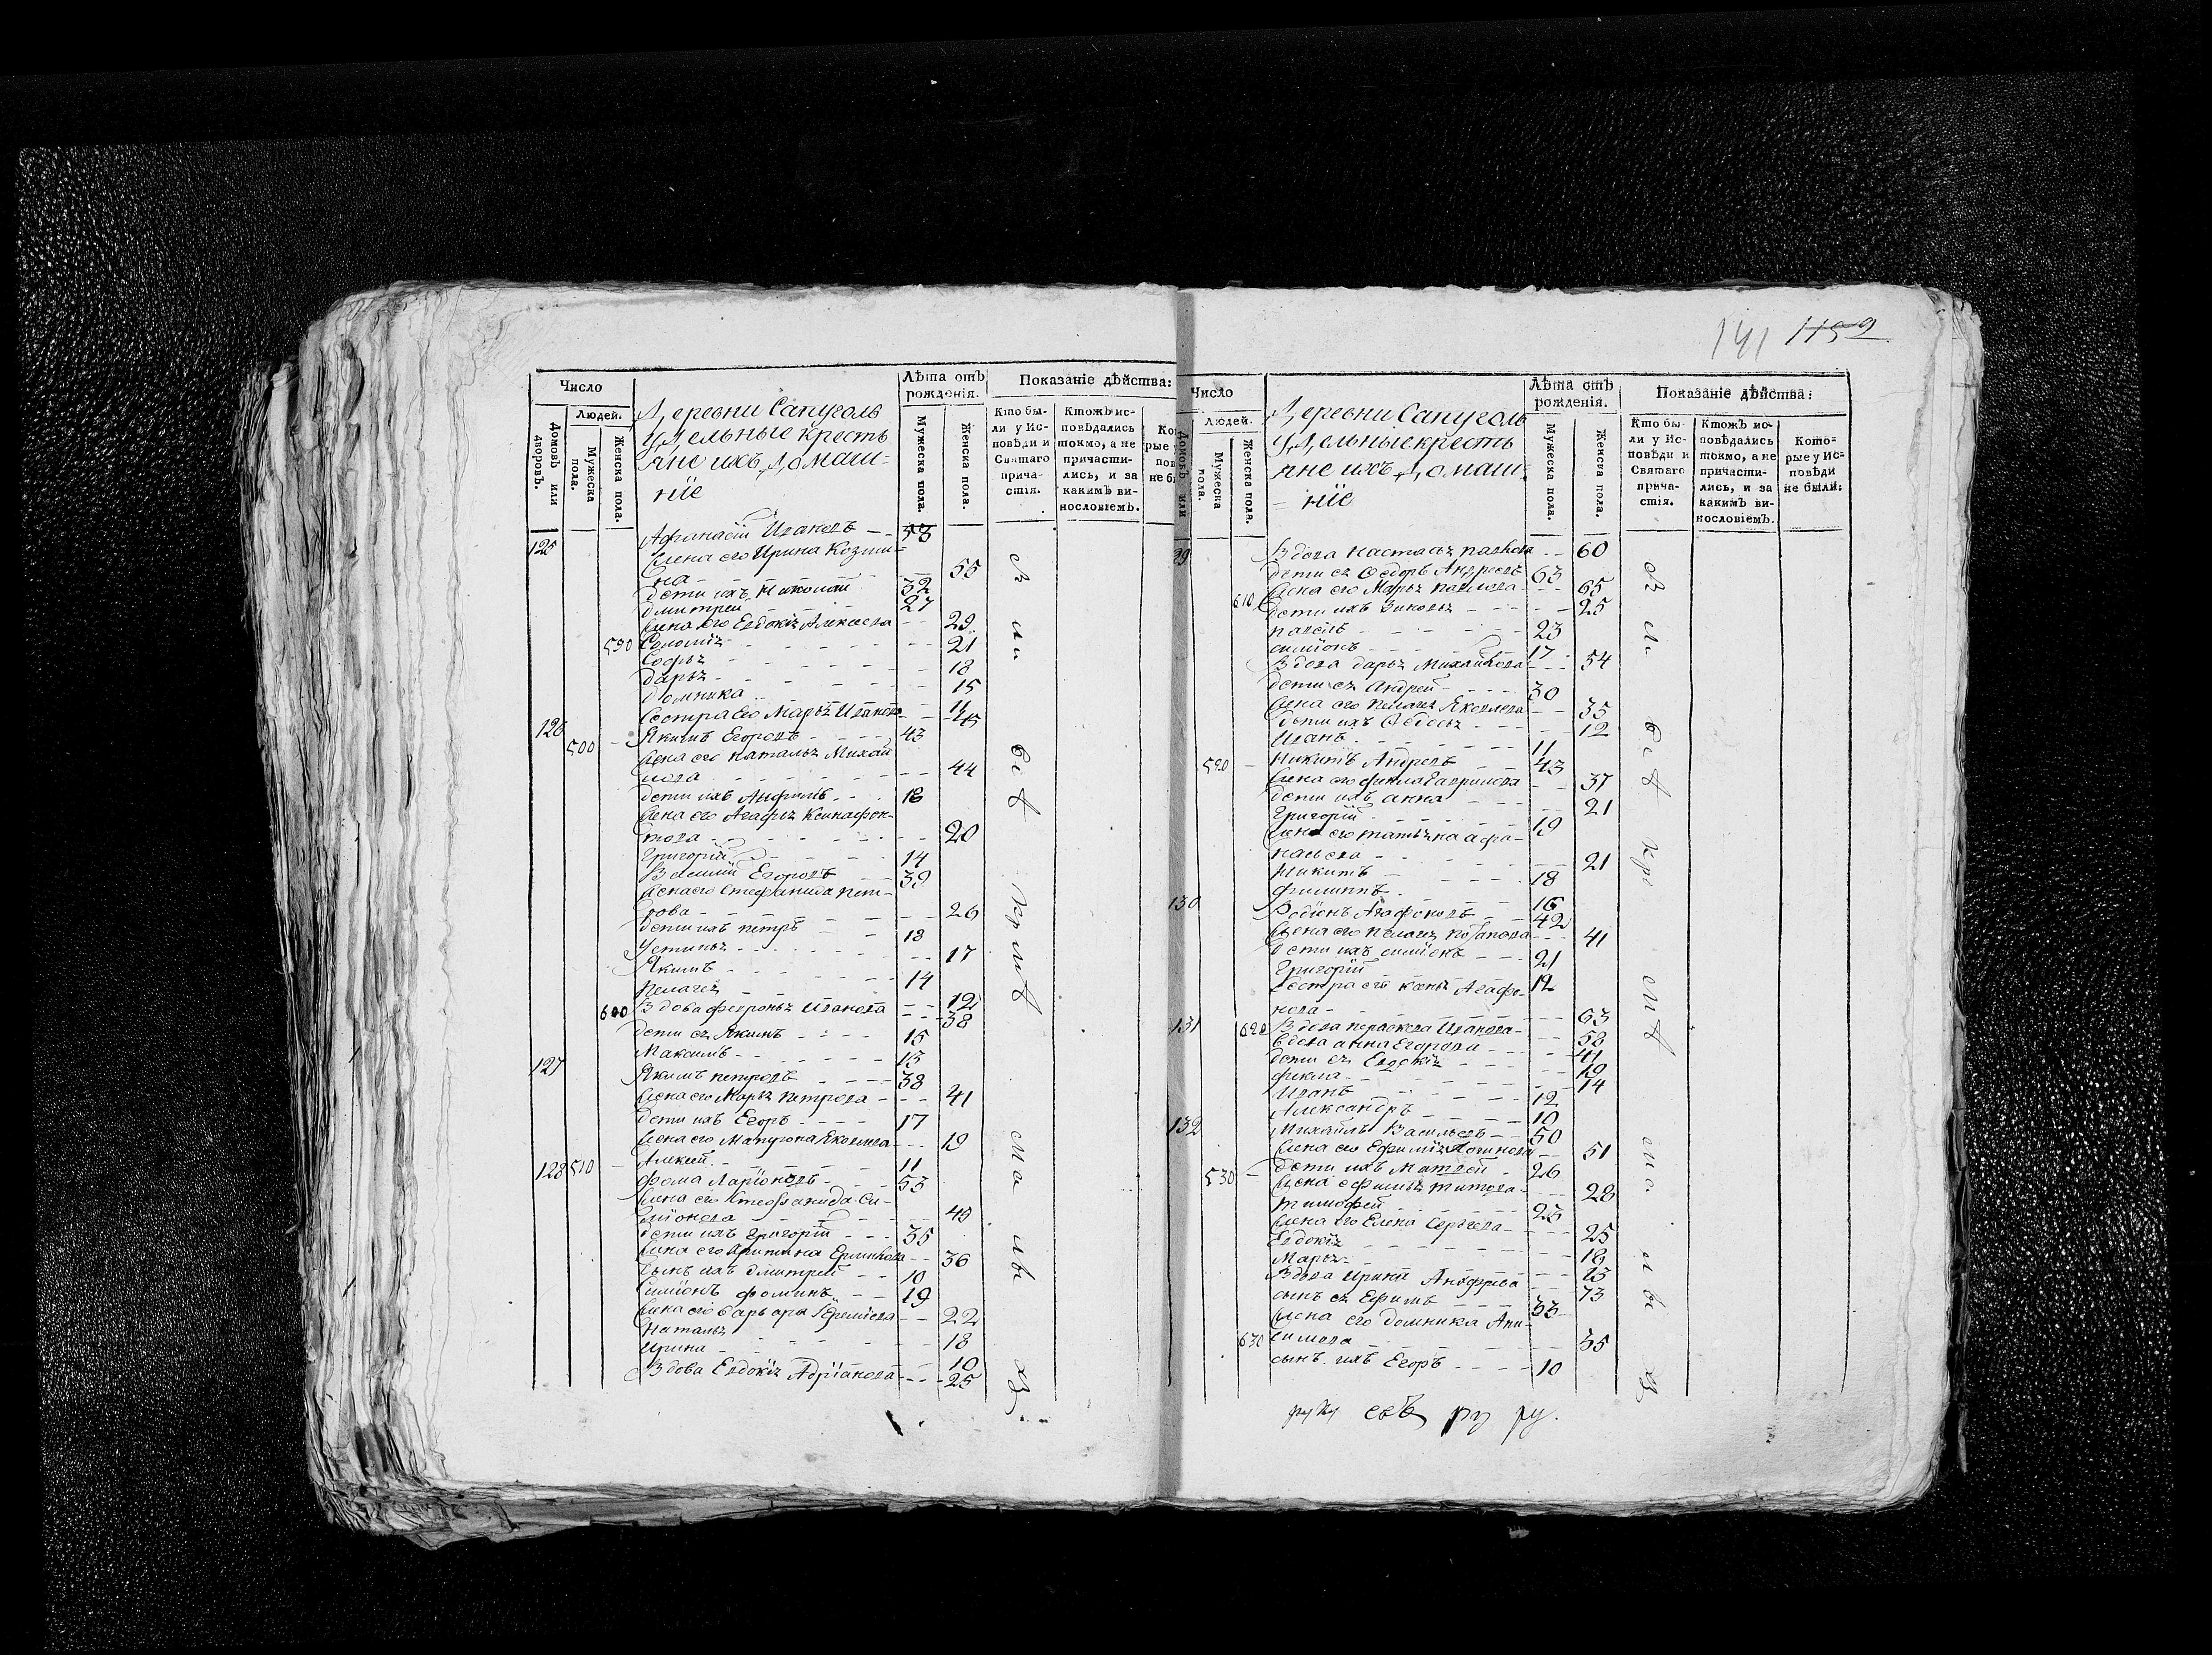 Число
Людей.
Домовъ или дворовъ.
Мужеска пола.
Женска пола.
Деревни Сапуголь
Удельные кресть
яне ихъ домаш-
ніе
Лѣта отъ рожденія.
Мужеска пола.
Женска пола.
Показаніе дѣйства:
Кто бы-
ли у Ис-
повѣди и
Святаго
прича-
стія.
Ктожъ ис-
повѣдались
токмо, а не
причасти-
лись, и за
какимъ ви-
нословіемъ.
125 Афанасій Ивановъ 53
Жена его Ирина Козми-
на 55
дети ихъ Николай 32
дмитреи 27
Жена его Евдокія Алексеева 29
590 Соломія 21
Софья 18
дарья 15
домника 11
Сестра его Марья Иванова 45
126 Якимъ Егоровъ 43
500 Жена его наталья Михай
лова 44
дети ихъ Анфимъ 18
Жена его Агафья Ксинафон-
това 20
Григорій 14
Василий Егоровъ 39
Жена его Стефанида пет-
рова 26
дети ихъ петръ 18
Устинья 17
Якимъ 14
Пелагея 12
600 Вдова феврон*я Иванова 38
дети ея Якимъ 15
Максимъ 13
127 Якимъ петровъ 38
Жена его Марья петрова 41
дети ихъ Егоръ 17
Жена его Матрона Яковлева 19
510 Алексей 11
128 фома Ларіоновъ 53
Жена его Стефанида Си-
міонова 49
дети ихъ Григорій 35
Жена его Ирина Ермикова 36
Сынъ ихъ дмитрей 10
Симіонъ фоминъ 19
Жена его варвара Ереміева 22
Наталья 18
Ирина 10
Вдова Евдокія Адріанова 25
141 1159
Число
Людей.
Домовъ или
Мужеска пола.
Женска пола.
Деревни Сапуголь
Удельные кресть
яне ихъ домаш-
ніе
Лѣта отъ рожденія.
Мужеска пола.
Женсва пола.
Показаніе дѣйства:
Кто бы-
ли у Ис-
повѣди и
Святаго
прича-
стія.
Ктожъ ис-
повѣдались
токмо, а не
причасти-
лись, и за
какимъ ви-
нословіемъ.
Кото-
рые у Ис-
повѣди
не были:
29 Вдова настасья павлова 60
дети ея Федоръ Андреевъ 63
610 Жена его Марья павлова 65
дети ихъ Зиновья 25
павелъ 23
симіонъ 17
Вдова дарья Михайлова 54
дети ея Андрей 30
Жена его пелагея Яковлева 35
дети ихъ Федосья 12
Иванъ 11
520 Никитъ Андреевъ 43
Жена его фекла Гаврилова 37
дети ихъ анна 21
Григорій 19
Жена его татьяна афа-
насьева 21
Никитъ 18
филиппъ 16
130 Родіонъ Агафоновъ 42
Жена его пелагея потапова 41
дети ихъ симіонъ 21
Григорій 12
Сестра его Агафо-
нова 63
131 620 Вдова параскева Иванова 58
Вдова анна Егорова 41
дети ея Евдокія 19
фекла 14
Иванъ 12
Александръ 10
132 Михайлъ Васильевъ 50
Жена его Ефимія Логинова 51
530 дети ихъ Матвей 26
Жена ефимья титова 28
тимофей 23
Жена его Елена Сергеева 25
Евдокія 18
Марья 13
Вдова Ирина 73
сынъ ея Ефимъ 33
Жена его домника Ани-
630 симова 35
сынъ ихъ Егоръ 10
руку ру ру.